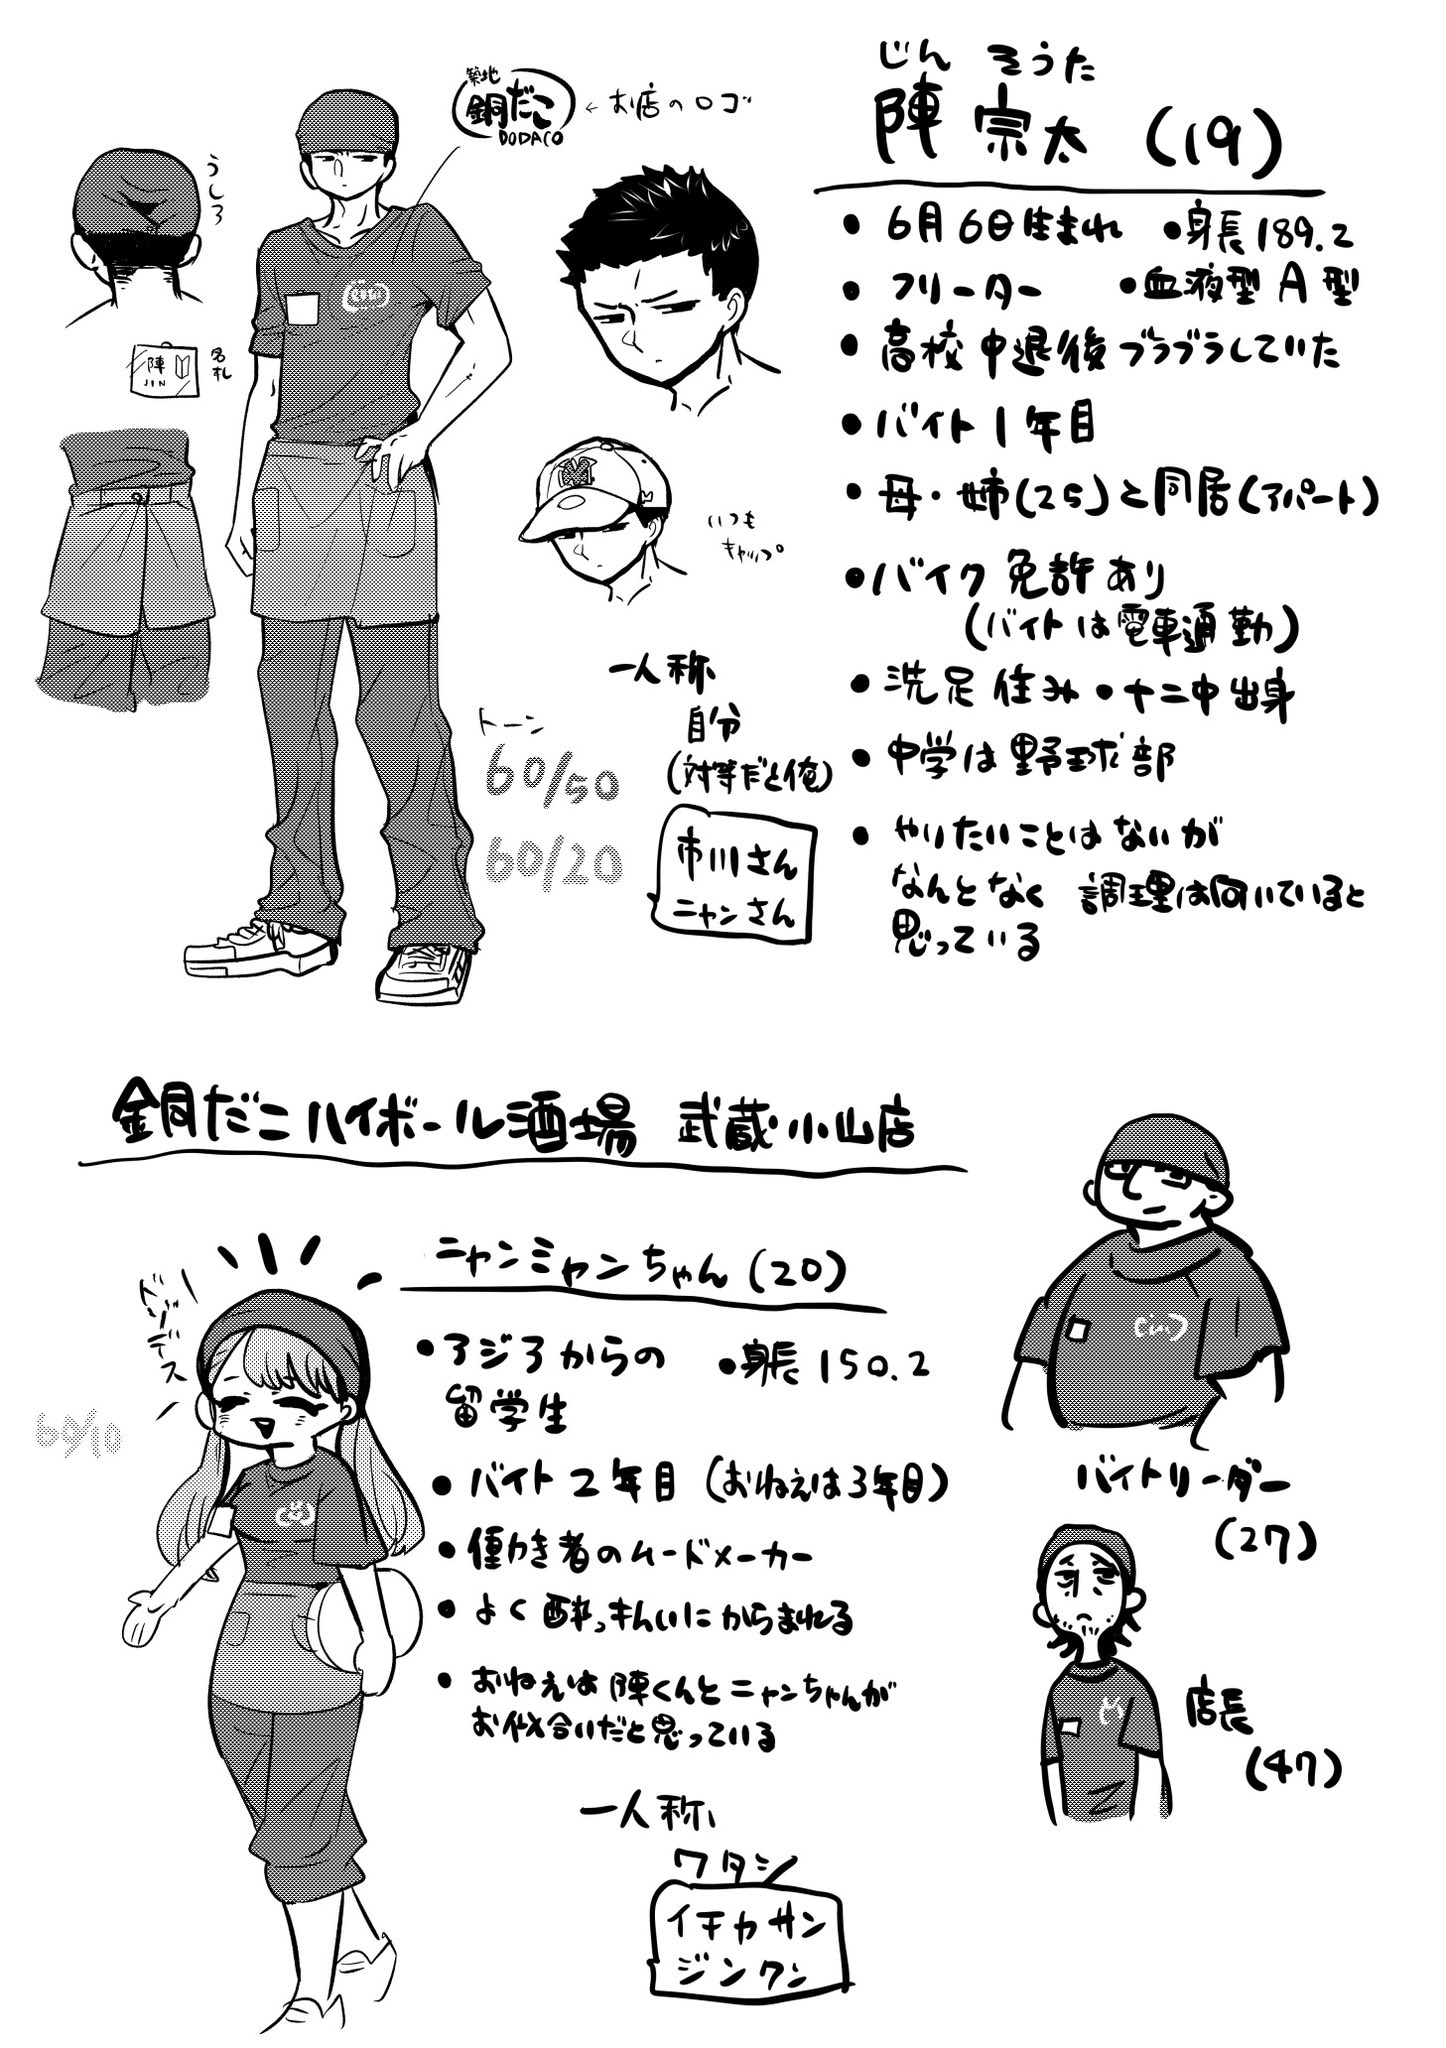 じん そうた
陣 宗太 (19)
築地
銅だこ
DODACO
←お店のロゴ
うしろ
陣
JIN
名札
いつも
キャップ
・6月6日生まれ ・身長189.2
・フリーター ・血液型 A型
・高校中退後ブラブラしていた
・バイト1年目
・母・姉(25)と同居(アパート)
・バイク免許あり
(バイトは電車通勤)
・洗足住み・十二中出身
・中学は野球部
・やりたいことはないが
なんとなく 調理は向いていると
思っている
一人称
自分
(対等だと俺)
市川さん
ニャンさん
トーン
60/50
60/20
銅だこハイボール酒場 武蔵小山店
ニャンミャンちゃん(20)
ドゾー
デス
60/10
・アジアからの
留学生
・身長150.2
・バイト2年目(おねえは3年目)
・働き者のムードメーカー
・よく酔っぱらいにからまれる
・おねえは陣くんとニャンちゃんが
お似合いだと思っている
一人称
ワタシ
イチカサン
ジンクン
バイトリーダー
(27)
店長
(47)